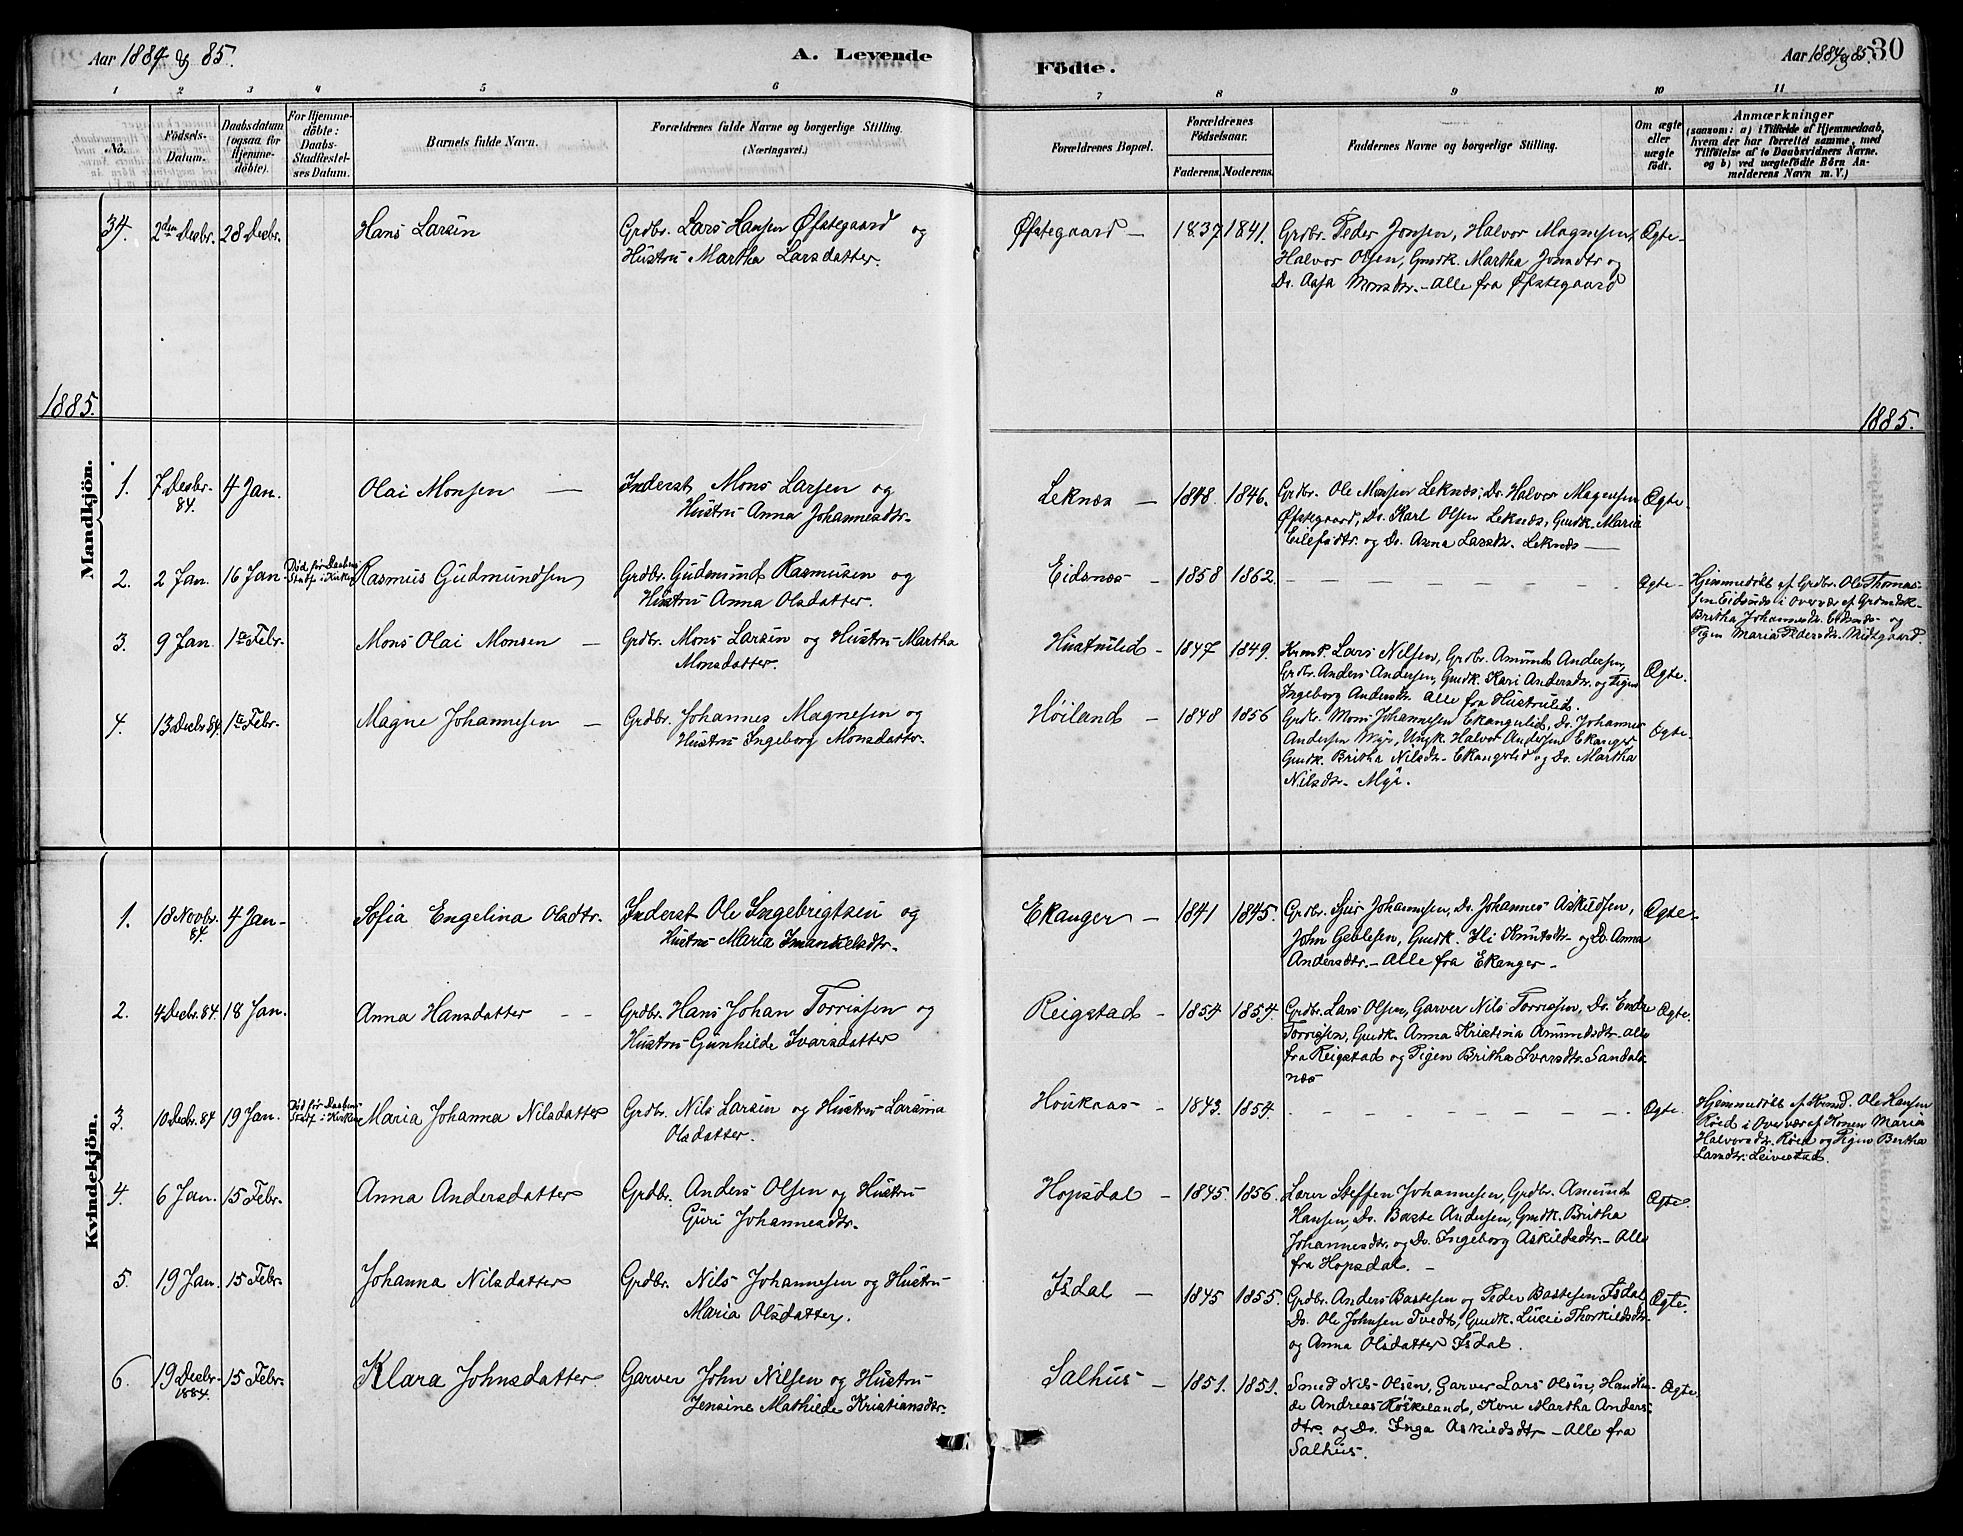 Aar 1884 & 85.
A. Levende
Födte.
Aar 1884 & 85.
30
1 2 3 4 5 6 7 8 9 10 11
No.
Födsels-
Datum.
Daabsdatum
(ogsaa for
Hjemme-
döbte).
For Hjemme-
döbte:
Daabs-
Stadfæstel-
ses Datum.
Barnets fulde Navn.
Forældrenes fulde Navne og borgerlige Stilling.
(Næringsvei.)
Forældrenes Bopæl.
Forældrenes
Födselsaar.
Faderens. Moderens.
Faddernes Navne og borgerlige Stilling.
Om ægte
eller
uægte
födt.
Anmærkninger
(saasom: a) i Tilfælde af Hjemmedaab,
hvem der har forrettet samme, med
Tilföielse af to Daabsvidners Navne.
og b) ved uægtefödte Börn An-
melderens Navn m. V.)
34. 2den Decbr. 28 Decbr. Hans Larsen
Grdbr. Lars Hansen Øfstegaard og
Hustru Martha Larsdatter.
Øfstegaard — 1837 1841.
Grdbr. Peder Jonsen, Halvor Magnesen,
Halvor Olsen, Gmdk. Martha Jonsdtr og
Do. Aasa Monsdtr. — alle fra Øfstegaard
Ægte —
1885.
1885.
Mandkjön.
1. 7 Decbr. 84. 4 Jan. Olai Monsen —
Inderst Mons Larsen og
Hustru Anna Johannesdtr.
Leknæs — 1848. 1846.
Grdbr. Ole Monsen Leknæs, Do. Halvor Magnesen
Øfstegaard, Do. Karl Olsen Leknæs, Gmdk. Maria
Eilefsdtr. og Do. Anna Larsdtr. Leknæs —
Ægte.
2. 2 Jan. 16 Jan. Död før Daabens
Stadf. i Kirken Rasmus Gudmundsen
Grdbr. Gudmund Rasmusen og
Hustru Anna Olsdatter.
Eidsnes — 1858 1862. — — — — — — —
Ægte —
Hjemmedöbt af Grdbr. Ole Thomas-
sen Eidsnes i Overvær af Grdmdsk.
Britha Johannesdr. Eidsnes og
Pigen Maria Pedersdr. Midtgaard.
3. 9 Jan. 1ste Febr. Mons Olai Monsen —
Grdbr. Mons Larsen og Hustru Martha
Monsdatter.
Hustrulid — 1847 1849.
Lars Nilsen, Grdbr. Amund Andersen,
Grdbr. Anders Andersen, Gmdk. Kari Andersdtr. og Pigen
Ingeborg Andersdtr. alle fra Hustrulid.
Ægte.
4. 13 Decbr 84. 1ste Febr. Magne Johannesen —
Grdbr. Johannes Magnesen og
Hustru Ingeborg Monsdatter.
Høiland — 1848 1856
Grdbr. Mons Johannesen Ekangerlid, Do. Johannes
Andersen Myr, Ungk. Halvor Andersen Ekanger
Gmdk. Britha Nilsdtr. Ekangerlid og Do. Martha
Nilsdtr. Myr.
Ægte.
Kvindekjön.
1. 18 Novbr. 84. 4 Jan — Sofia Engelina Olsdtr.
Inderst Ole Ingebrigtsen og
Hustru Maria Imanuelsdtr.
Ekanger — 1841 1845.
Grdbr. Sjur Johannesen, Do. Johannes Askildsen,
John Geblesen, Gmdk. Ili Knutsdtr. og Do. Anna
Andersdtr. — alle fra Ekanger —
Ægte.
2. 4 Decbr. 84. 18 Jan. Anna Hansdatter — —
Grdbr. Hans Johan Torrisen og
Hustru Gunhilde Ivarsdatter
Reigstad — 1854 1854.
Grdbr. Lars Olsen, Garver Nils Torrisen, Do. Endre
Torrisen, Gmdk. Anna Kristina Amundsdtr. alle
fra Reigstad og Pigen Britha Ivarsdtr. Sandals
næs
Ægte.
3. 10 Decbr. 84 19 Jan. Död før Daabens
Stadf. i Kirken Maria Johanna Nilsdatter
Grdbr. Nils Larsen og Hustru Larsina
Olsdatter.
Houkaas — 1843. 1854. — — — — — — —
Ægte.
Hjemmedöbt af Ole Hansen
Røed i Overvær af Konen Maria
Halvorsdr. Røed og Pigen Bertha
Larsdtr. Leivestad.
4. 6 Jan. 15 Febr. Anna Andersdatter
Grdbr. Anders Olsen og Hustru
Guri Johannesdtr.
Hopsdal — 1845. 1856.
Lærer Steffen Johannesen, Grdbr. Amund
Hansen, Do. Baste Andersen, Gmdk. Britha
Johannesdtr. og Do. Ingeborg Askildsdtr. — alle
fra Hopsdal. —
Ægte.
5. 19 Jan. 15 Febr. Johanna Nilsdatter
Grdbr. Nils Johannesen og Hustru
Maria Olsdatter.
Isdal — 1845 1855.
Grdbr. Anders Bastesen og Peder Bastesen Isdal
Do. Ole Johnsen Tvedt, Gmdk. Lucie Thorkildsdtr
og Anna Olsdatter Isdal.
Ægte.
6. 19 Decbr. 1884. 15 Febr. Klara Johnsdatter
Garver John Nilsen og Hustru
Jensine Mathilde Kristiansdtr.
Salhus — 1851. 1851.
Smed Nils Olsen, Garver Lars Olsen, Handlen-
de Andreas Röskeland, Kone Martha Anders-
dtr. og Do. Inga Askildsdtr — Alle fra
Salhus.
Ægte.